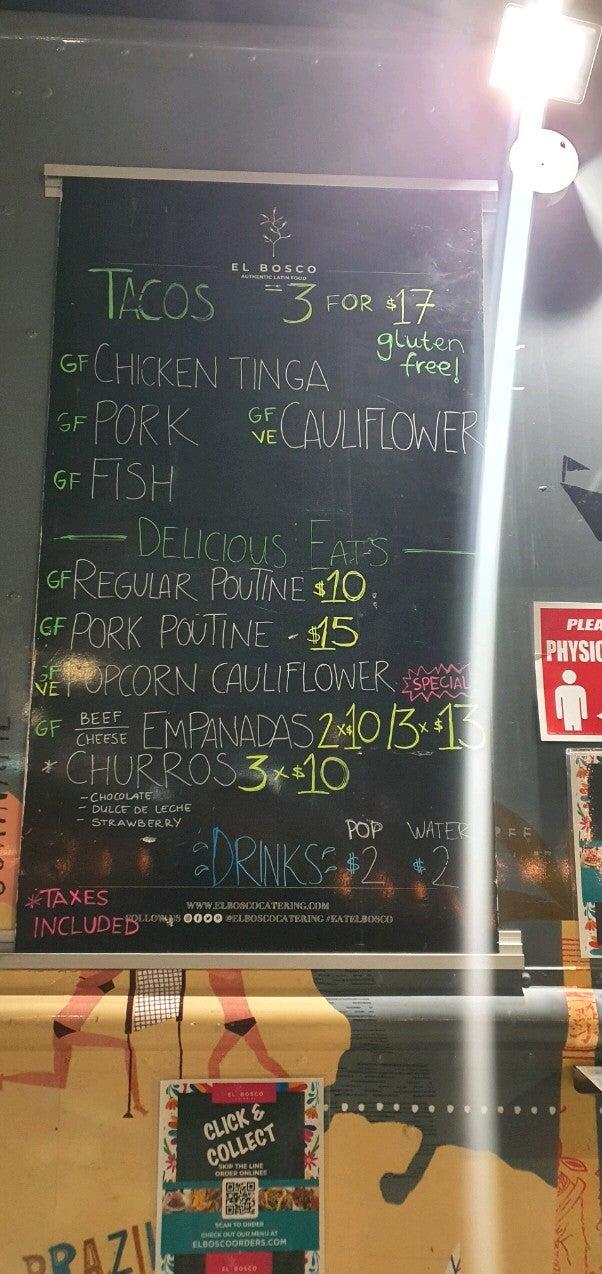 EL BOSCO
AUTHENTIC LATIN FOOD
TACOS = 3 FOR $17
gluten free!
GF CHICKEN TINGA
GF PORK GF VE CAULIFLOWER
GF FISH
DELICIOUS EATS
GF REGULAR POUTINE $10
GF PORK POUTINE - $15
GF VE POPCORN CAULIFLOWER SPECIAL
GF BEEF CHEESE EMPANADAS 2x$10/3x$13
* CHURROS 3x$10
- CHOCOLATE
- DULCE DE LECHE
- STRAWBERRY
POP WATER
DRINKS $2 $2
*TAXES INCLUDED
WWW.ELBOSCOCATERING.COM
FOLLOW US @ELBOSCOCATERING #EATELBOSCO
PLEA
PHYSIC
EL BOSCO
CLICK &
COLLECT
SKIP THE LINE
ORDER ONLINE!
SCAN TO ORDER
CHECK OUT OUR MENU AT
ELBOSCOORDERS.COM
EL BOSCO
BRAZIL